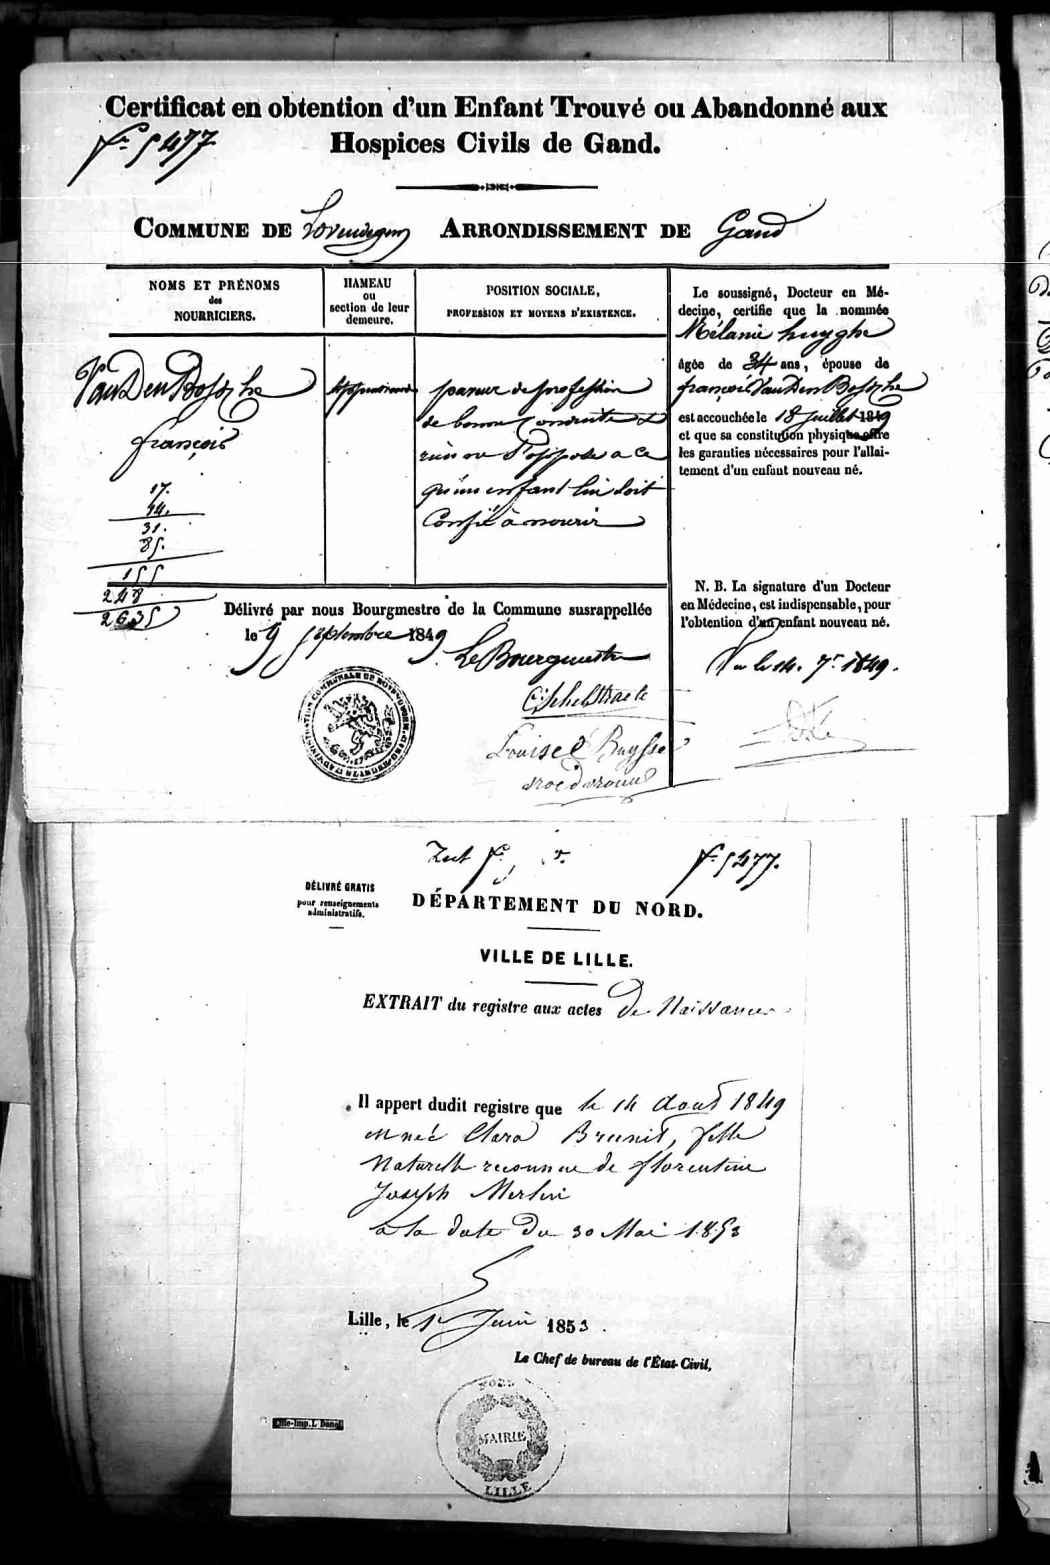 Certificat en obtention d'un Enfant Trouvé ou Abandonné aux
Hospices Civils de Gand.
5477
COMMUNE DE Lovendegem ARRONDISSEMENT DE Gand
NOMS ET PRÉNOMS
des
NOURRICIERS.
HAMEAU
ou
section de leur
demeure.
POSITION SOCIALE,
PROFESSION ET MOYENS D'EXISTENCE.
Van Den Bossche
françois
17.
14.
31.
85.
155
248
de profession
de bonne conduite et
rien ne s'oppose a ce
qu'un enfant lui soit
Confié à nourir
Le soussigné, Docteur en Mé-
decine, certifie que la nommée
Mélanie huyghe
âgée de 34 ans, épouse de
françois Van Den Bossche
est accouchée le 18 juillet 1849
et que sa constitution physique offre
les garanties nécessaires pour l'allai-
tement d'un enfant nouveau né.
N. B. La signature d'un Docteur
en Médecine, est indispensable, pour
l'obtention d'un enfant nouveau né.
Vu le 14. 7r 1849.
Délivré par nous Bourgmestre de la Commune susrappellée
le 9 septembre 1849
Le Bourgmestre
5477.
DÉLIVRÉ GRATIS
pour renseignements
administratifs.
DÉPARTEMENT DU NORD.
VILLE DE LILLE.
EXTRAIT du registre aux actes De Naissances
Il appert dudit registre que le 14 Août 1849
est née Clara Brunil, fille
Naturelle reconnue de florentine
Joseph Merlin
à la date du 30 Mai 1853
Lille, le 1r Juin 1853.
Le Chef de bureau de l'État-Civil,
NORD
MAIRIE
LILLE
Lille-Imp. L. Danel